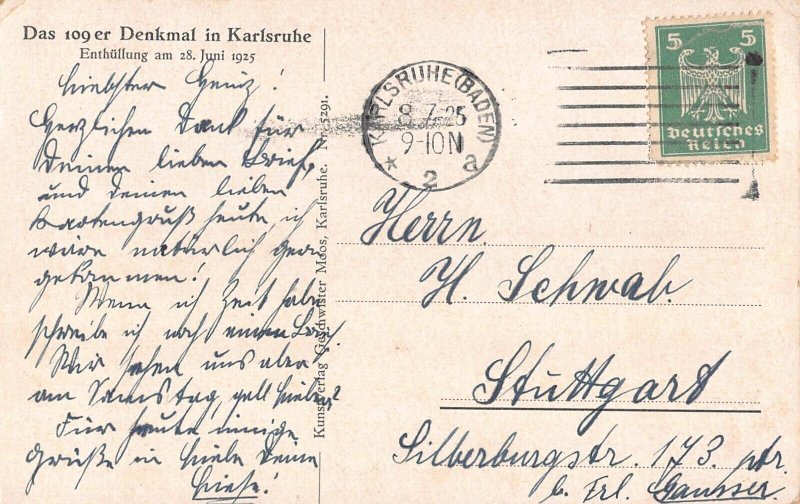 Das 109er Denkmal in Karlsruhe
Enthüllung am 28. Juni 1925
Liebster Heinz!
Herzlichen Dank für
Deinen lieben Brief,
und Deinen lieben
Kartengruß heute, ich
wäre natürlich gern
gekommen!
Wenn ich Zeit habe
schreibe ich noch einen Brief.
Wir sehen uns aber
am Samstag, gell Lieber?
Für heute innige
Grüße in Liebe Deine
Kunstverlag Geschwister Moos, Karlsruhe. Nr. 5291.
KARLSRUHE (BADEN)
8.7.25
9-10 N
* 2 a
5 5
Deutsches
Reich
Herrn
H. Schwab.
Stuttgart
Silberburgstr. 173 ptr.
b. Frl.